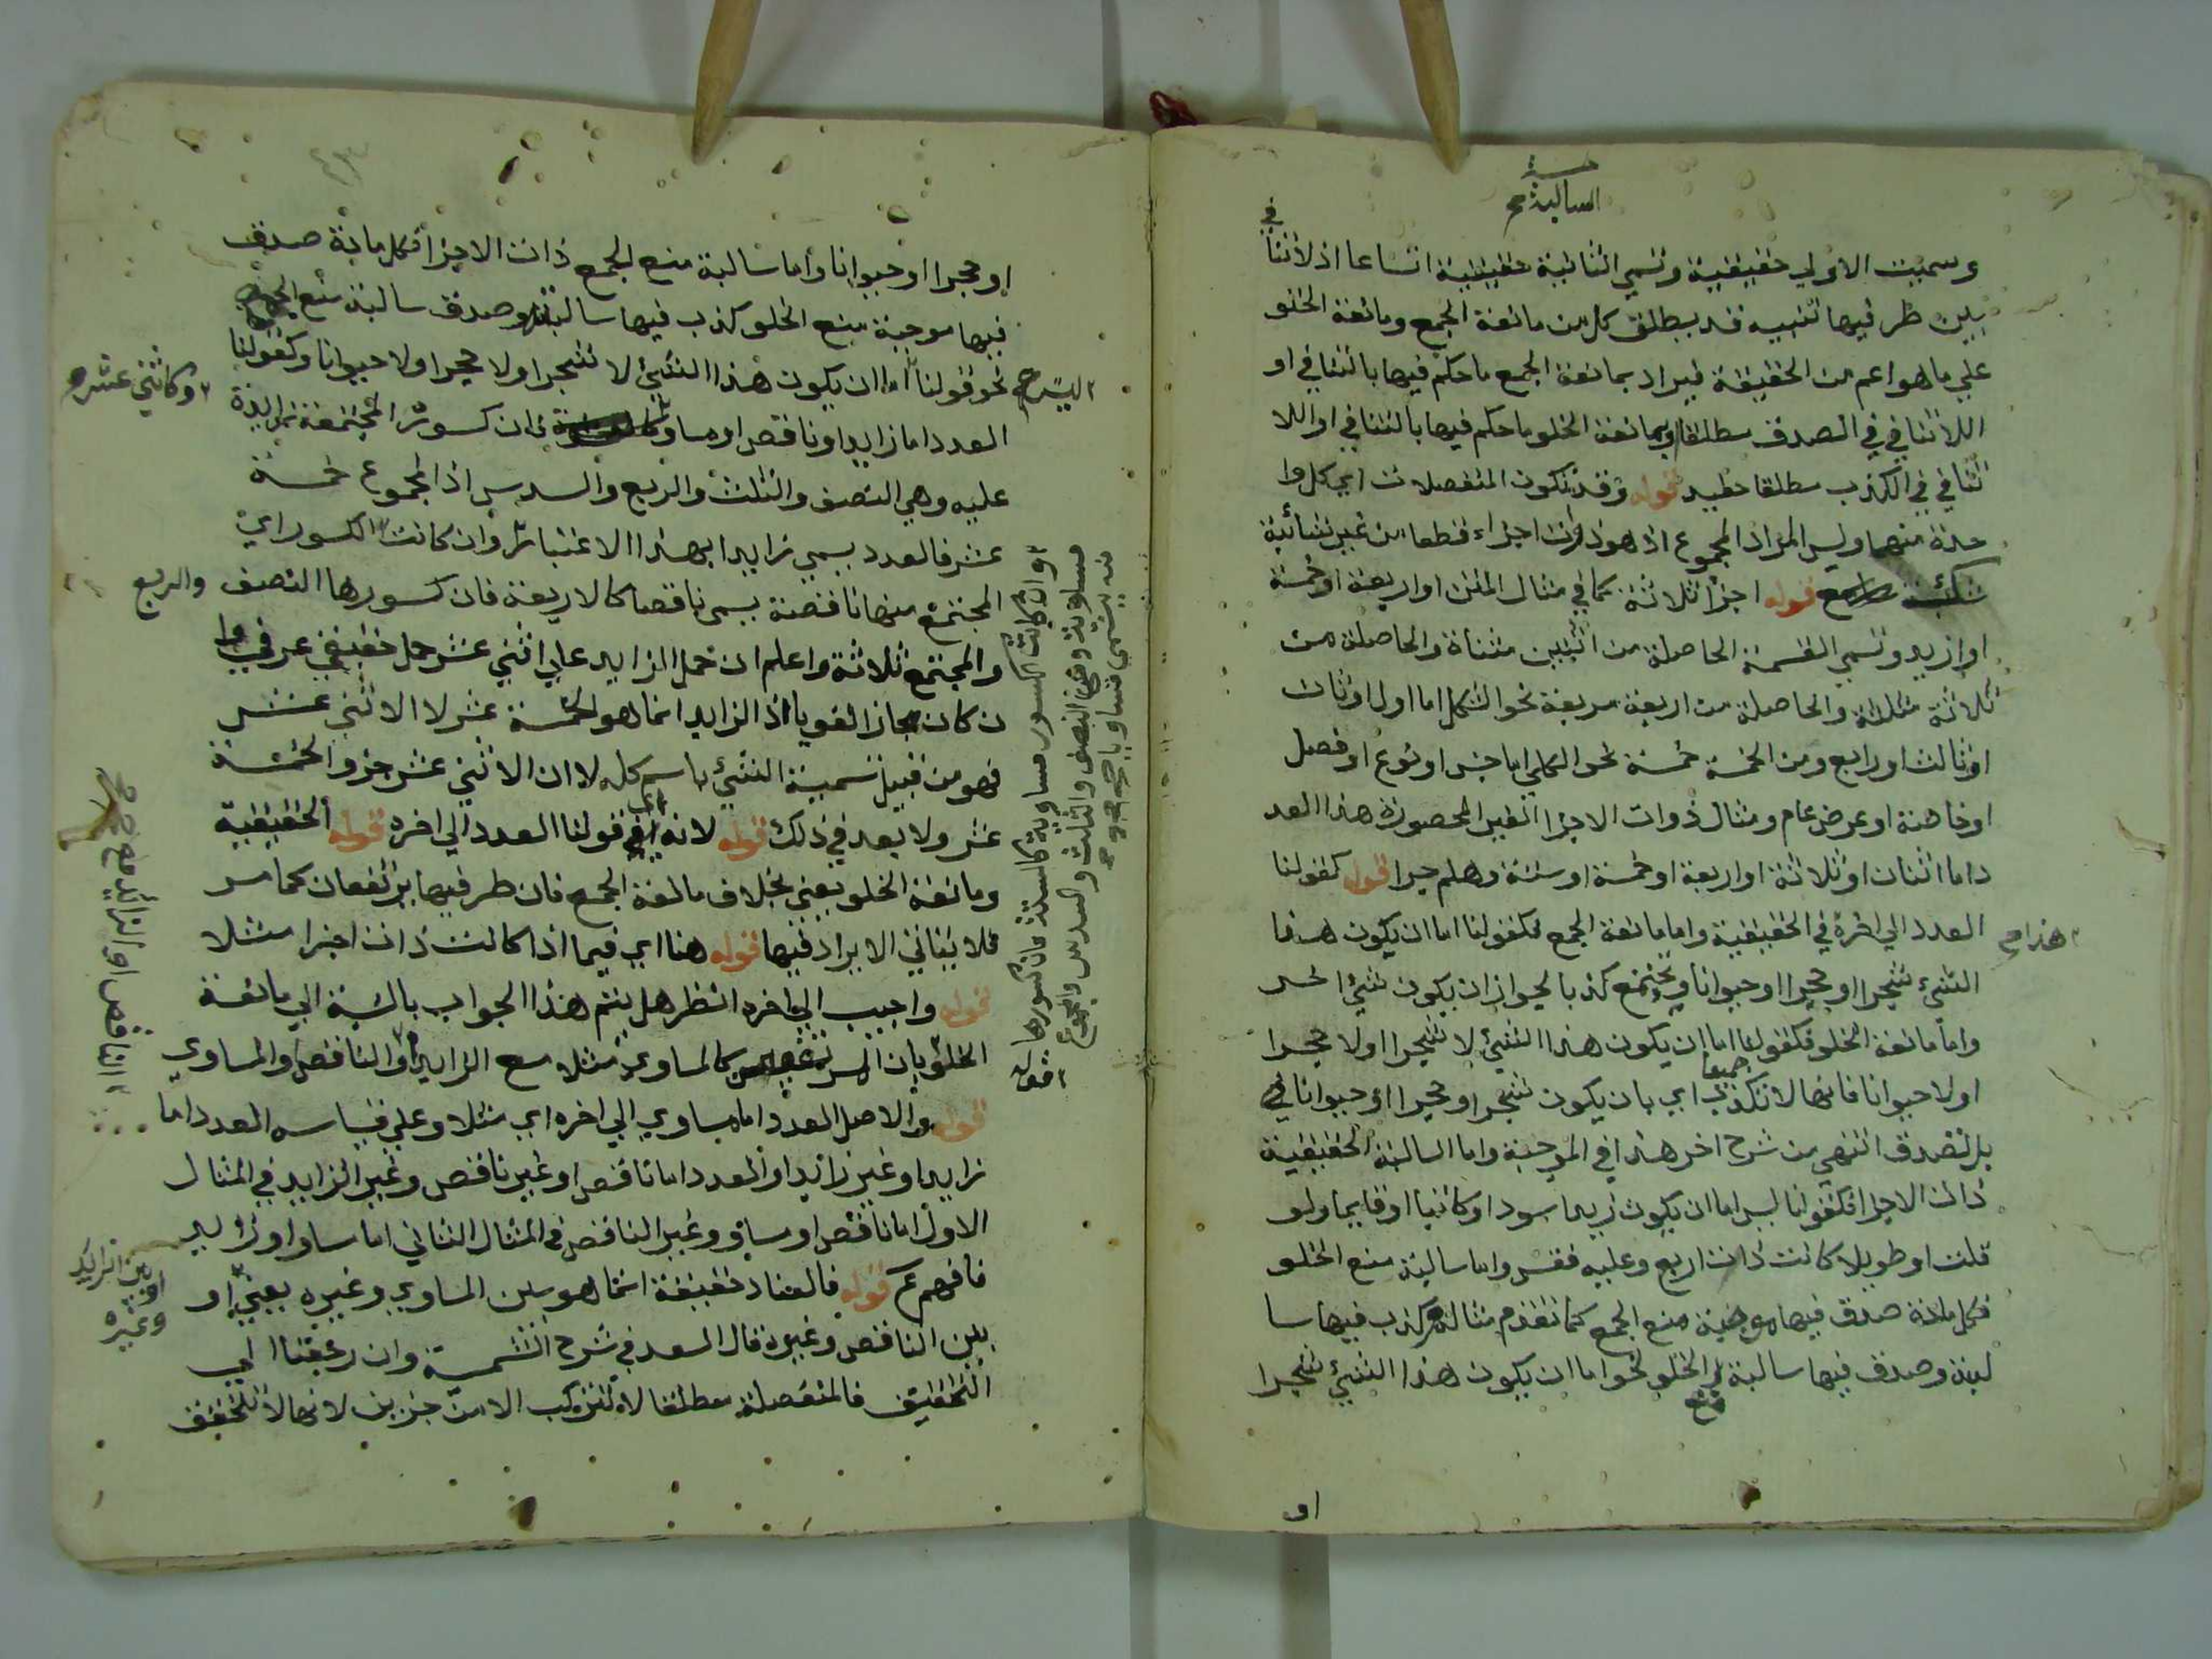 السالبة صح
وسميت الاولي حقيقية وتسمي الثانية حقيقية اتساعا اذ لا تنافي
بين طرفيها تنبيه قد يطلق كل من مانعة الجمع ومانعة الخلو
علي ما هو اعم من الحقيقة فيراد بمانعة الجمع ما حكم فيها بالتنافي او
اللا تنافي في الصدق مطلقا وبمانعة الخلو ما حكم فيها بالتنافي او اللا
تنافي في الكذب مطلقا حفيد قوله وقد تكون المنفصلات اي كل وا
حدة منها وليس المراد المجموع اذ هو ذوات اجزاء قطعا من غير شائبة
قوله اجزا ثلاثة كما في مثال المتن او اربعة او خمسة
او ازيد وتسمي القسمة الحاصلة من اثنين مثناة والحاصلة من
ثلاثة مثلثة والحاصلة من اربعة مربعة نحو الشكل اما اول او ثان
او ثالث او رابع ومن الخمسة خمسة نحو الكلي اما جنس او نوع او فصل
او خاصة او عرض عام ومثال ذوات الاجزا الغير المحصورة هذا العد
د اما اثنان او ثلاثة او اربعة او خمسة او ستة وهلم جرا قوله كقولنا
العدد الي اخره في الحقيقية واما مانعة الجمع فكقولنا اما ان يكون هذا
هذا صح
الشئ شجرا او حجرا او حيوانا ويجتمع كذبا لجواز ان يكون شيئا اخر
واما مانعة الخلو فكقولنا اما ان يكون هذا الشئ لا شجرا او لا حجرا
او لا حيوانا فانها لا تكذب جميعا اي بان يكون شجرا وحجرا او حيوانا
بل تصدق انتهي من شرح اخر هذا في الموجبة واما السالبة الحقيقية
ذات الاجزا فكقولنا ليس اما ان يكون زيد اسود او كاتبا او قايما ولو
قلت او طويلا كانت ذات اربع وعليه فقس واما سالبة منع الخلو
فكل مادة صدق فيها موجبة منع الجمع كما تقدم مثاله كذب فيها سا
لبته وصدق فيها سالبة منع الخلو نحو اما ان يكون هذا الشئ شجرا
او
او حجرا او حيوانا واما سالبة منع الجمع ذات الاجزا فكل مادة صدق
فيها موجبة منع الخلو كذب فيها سالبته وصدق سالبة منع الجمع
نحو قولنا اما ان يكون هذا الشئ لا شجرا او لا حجرا او لا حيوانا وكقولنا
العدد اما زايد او ناقص او مساو فان كسوره المجتمعة زايدة
وكاثني عشر صح
عليه وهي النصف والثلث والربع والسدس اذ المجموع خمسة
عشر فالعدد يسمي زايدا بهذا الاعتبار وان كانت الكسور اي
المجتمع منها ناقصة يسمي ناقصا كالاربعة فان كسورها النصف والربع
والمجتمع ثلاثة واعلم ان حمل الزايد علي اثني عشر حمل حقيقي عرفي وا
ن كان مجازا لغويا اذ الزايد انما هو الخمسة عشر لا الاثني عشر
فهو من قبيل تسمية الشئ باسم كله لا ان الاثني عشر جزو الخمسة
عشر ولا بعد في ذلك قوله لانه اي قولنا العدد الي اخره قوله الحقيقية
ومانعة الخلو يعني بخلاف مانعة الجمع فان طرفيها يرتفعان كما مر
فلا يتاتي الايراد فيها قوله هنا اي فيما اذا كانت ذات اجزا مثلا
قوله واجيب الي اخره انظر هل يتم هذا الجواب بالنسبة الي مانعة
الخلو بان كالمساوي مثلا مع الزايد او الناقص او المساوي
قوله والاصل العدد اما مساوي الي اخره اي مثلا وعلي قياسه العدد اما
زايد او غير زايد او العدد اما ناقص او غير ناقص وغير الزايد في المثال
الاول اما ناقص او مساو وغير الناقص في المثال الثاني اما مساو او زايد
فافهم قوله فالعناد حقيقة انما هو بين المساوي وغيره يعني او
او بين الزايد
وغيره
بين الناقص وغيره قال السعد في شرح الشمسية وان رجعنا الي
التحقيق فالمنفصلة مطلقا لا تتركب الا من جزين لانها لا تتحقق
وان كانت الكسور مساوية كالستة فان كسورها
مساوية وهي النصف والثلث والسدس والمجموع
ستة يسمي مساويا
الناقص او الزايد صح